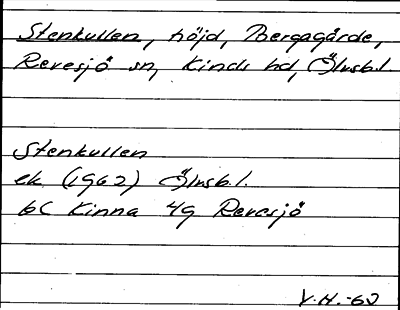 Stenkullen, höjd, Bergagärde,
Revesjö sn, Kinds hd, Älvsb.l.
Stenkullen
ek (1962) Älvsb.l.
bl Kinna 4g Revesjö
V.H.-60